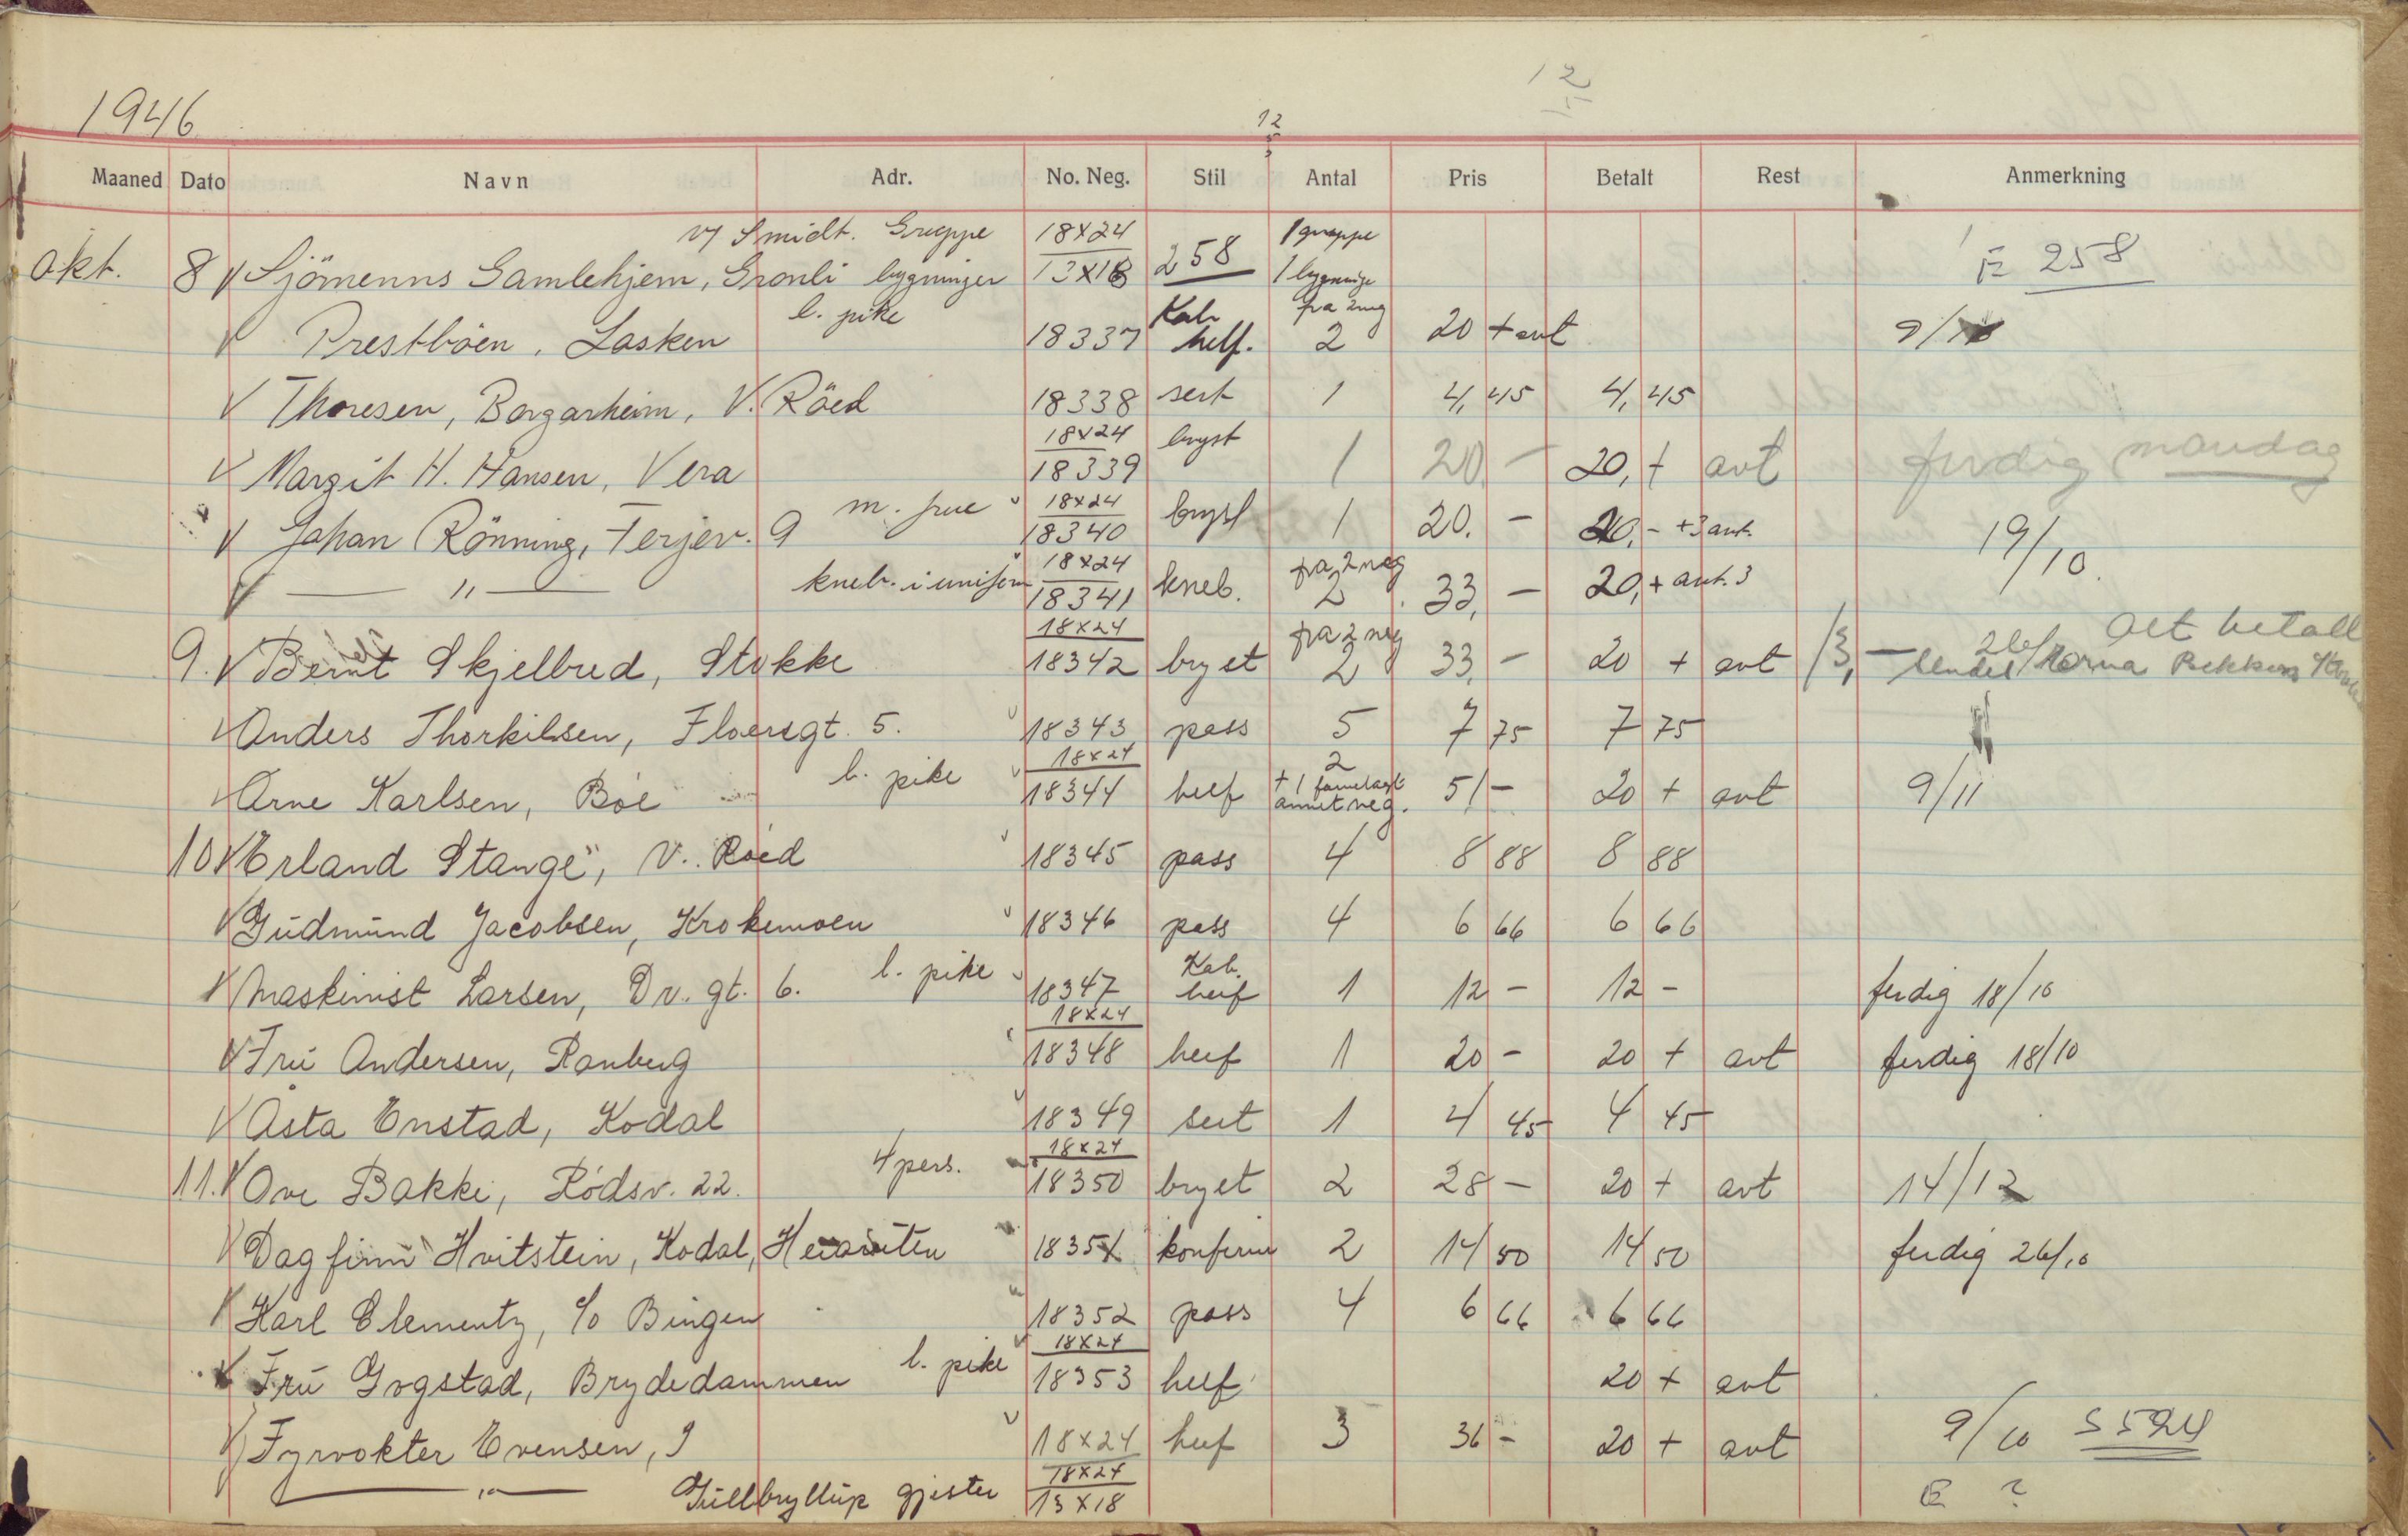 12
1946
12
Maaned Dato Navn Adr. No. Neg. Stil Antal Pris Betalt Rest Anmerkning
v/ Smidt. Gruppe 18x24 1 gruppe
Okt. 8 V Sjömenns Gamlehjem, Gronli bygninger 13x18 258 1 bygninge E 258
l. pike Kab fra 2 neg
V Prestböen, Lasken 18337 helf. 2 20 + avt 9/10
V Thoresen, Borgarheim, V. Röed 18338 sert 1 4,45 4,45
18x24 bryst
V Margit H. Hansen, Vera 18339 1 20 - 20,+ avt ferdig mandag
m. frue 18x24
V Johan Rönning, Terjev. 9 18340 bryst 1 20. - 20,- + 3 avt. 19/10.
kneb. i uniform 18x24 fra 2 neg
V — " — 18341 kneb. 2 33, - 20,+ avt. 3
18x24 fra 2 neg Alt betalt
9. V Bernt Skjelbred, Stokke 18342 bryst 2 33, - 20 + avt 13,- sendes
V Anders Thorkilsen, Floersgt. 5. 18343 pass 5 7 75 7 75
l. pike 18x24 2
V Arne Karlsen, Böe 18344 helf + 1 annet neg. 51 - 20 + avt 9/11
10 V Erland Stange, V. Röed 18345 pass 4 8 88 8 88
V Gudmund Jacobsen, Krokemoen 18346 pass 4 6 66 6 66
l. pike Kab.
V Maskinist Larsen, Dr. gt. 6. 18347 helf 1 12 - 12 - ferdig 18/10
18x24
V Fru Andersen, Ranberg 18348 helf 1 20 - 20 + avt ferdig 18/10
V Åsta Enstad, Kodal 18349 sert 1 4 45 4 45
4 pers. 18x24
11. V Ove Bakke, Rödsv. 22. 18350 bryst 2 28 - 20 + avt 14/12
V Dagfinn Hvitstein, Kodal, 18351 konfirm 2 14 50 14 50 ferdig 26/10
V Karl Clementz, c/o Bingen 18352 pass 4 6 66 6 66
l. pike 18x24
V Fru Gogstad, Brydedammen 18353 helf 20 + avt
V Fyrvokter Evensen, 18x24 helf 3 36 - 20 + avt 9/10 S 594
18x24
— " — Gullbryllup gjester 13x18 E ?